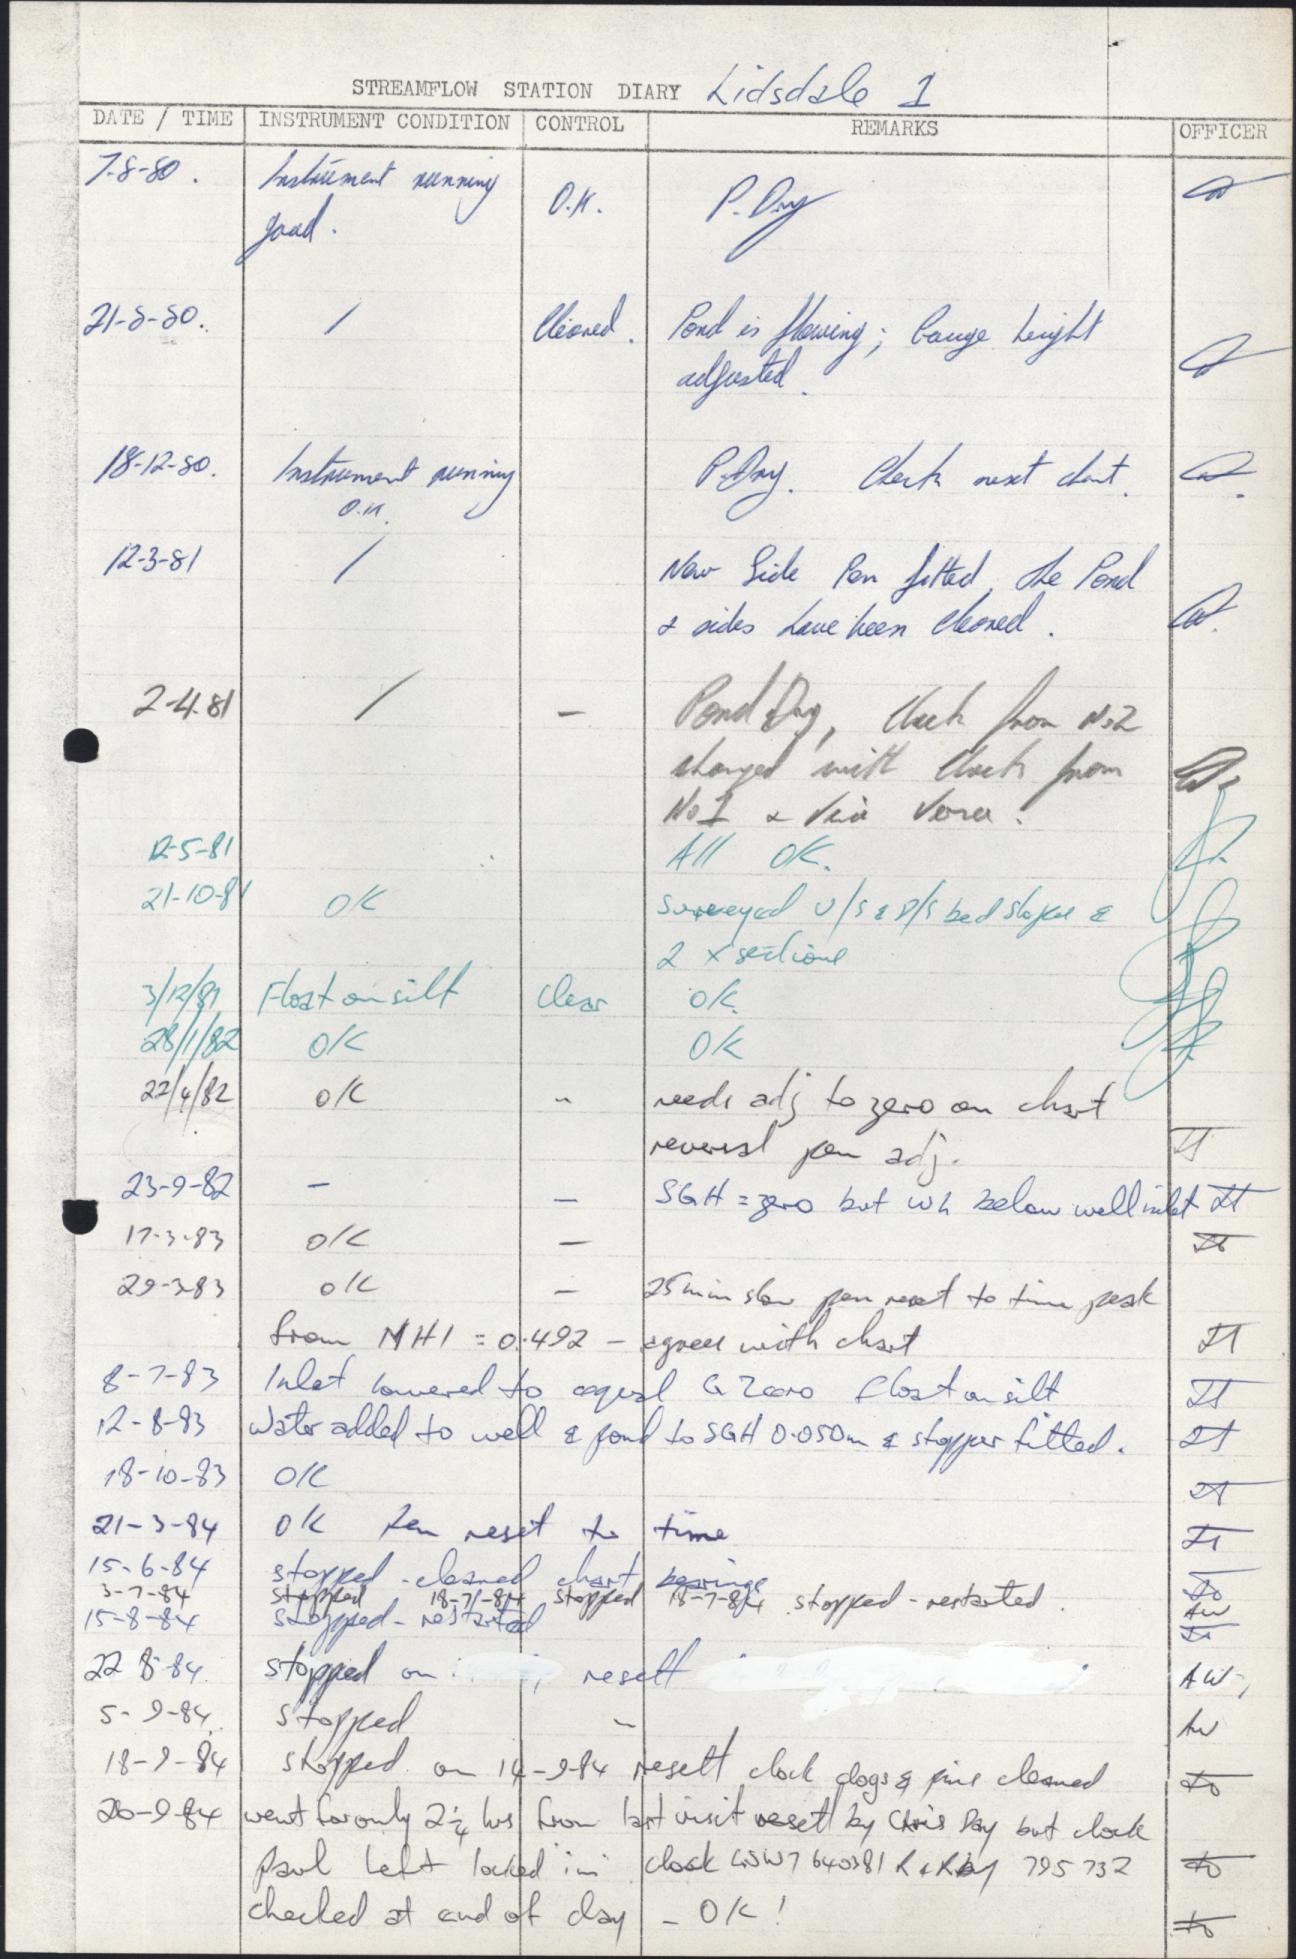 STREAMFLOW STATION DIARY Lidsdale 1
DATE / TIME INSTRUMENT CONDITION CONTROL REMARKS OFFICER
7-8-80. Instrument running O.K. P. Dry
good.
21-8-80. / Cleaned. Pond is flowing; Gauge height
adjusted.
18-12-80. Instrument running P. Dry. Check next chart.
O.K.
12-3-81 / New Side Pen fitted, the Pond
& sides have been cleaned.
2-4-81 / — Pond Dry, Clock from No2
changed with Clock from
No1 & Vice Versa.
12-5-81 All OK.
21-10-81 OK Surveyed U/S & D/S bed slopes &
2 x sections
3/12/81 Float on silt Clear OK.
28/1/82 OK OK
22/4/82 OK " needs adj to zero on chart
reversal pen adj.
23-9-82 — — SGH = zero but WL below well inlet
17-3-83 OK —
29-3-83 OK — 25 min slow pen reset to time peak
from MHI = 0.492 — agrees with chart
8-7-83 Inlet lowered to equal G Zero Float on silt
12-8-83 Water added to well & pond to SGH 0.050m & stopper fitted.
18-10-83 OK
21-3-84 OK Pen reset to time
15-6-84 stopped - cleaned chart bearings
3-7-84 stopped 18-7-84 stopped 18-7-84 stopped - restarted. AW
15-8-84 stopped - restarted
22-8-84 stopped on resett AW
5-9-84 Stopped " AW
18-9-84 stopped on 14-9-84 resett clock dogs & pins cleaned
20-9-84 went for only 2¼ hrs from last visit resett by Chris Day but clock
pawl left locked in clock WSW7 640381 795732
checked at end of day — OK!